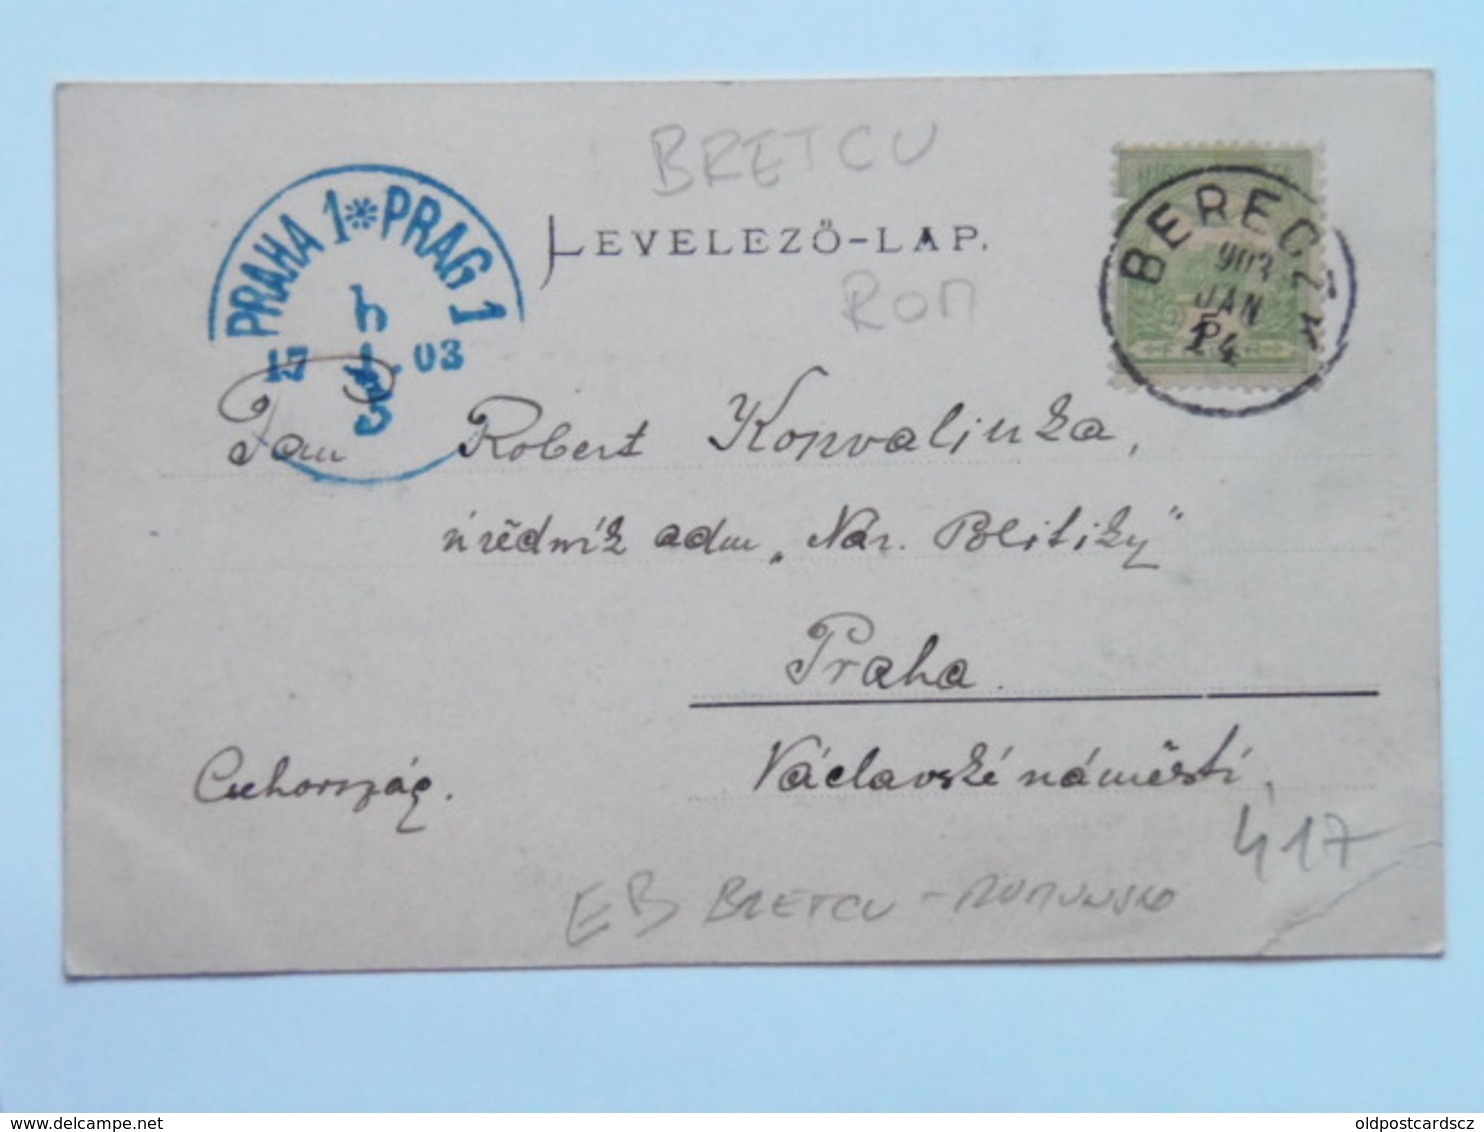 BRETCU
LEVELEZŐ-LAP.
ROM
PRAHA 1 * PRAG 1
17 03
BERECZK
903
JAN
14
5
Pan Robert Konvalinka,
úředník adm „Nár. Politiky"
Praha.
Václavské náměstí.
Csehország.
417
EB BRETCU - RUMUNSKO
oldpostcardscz